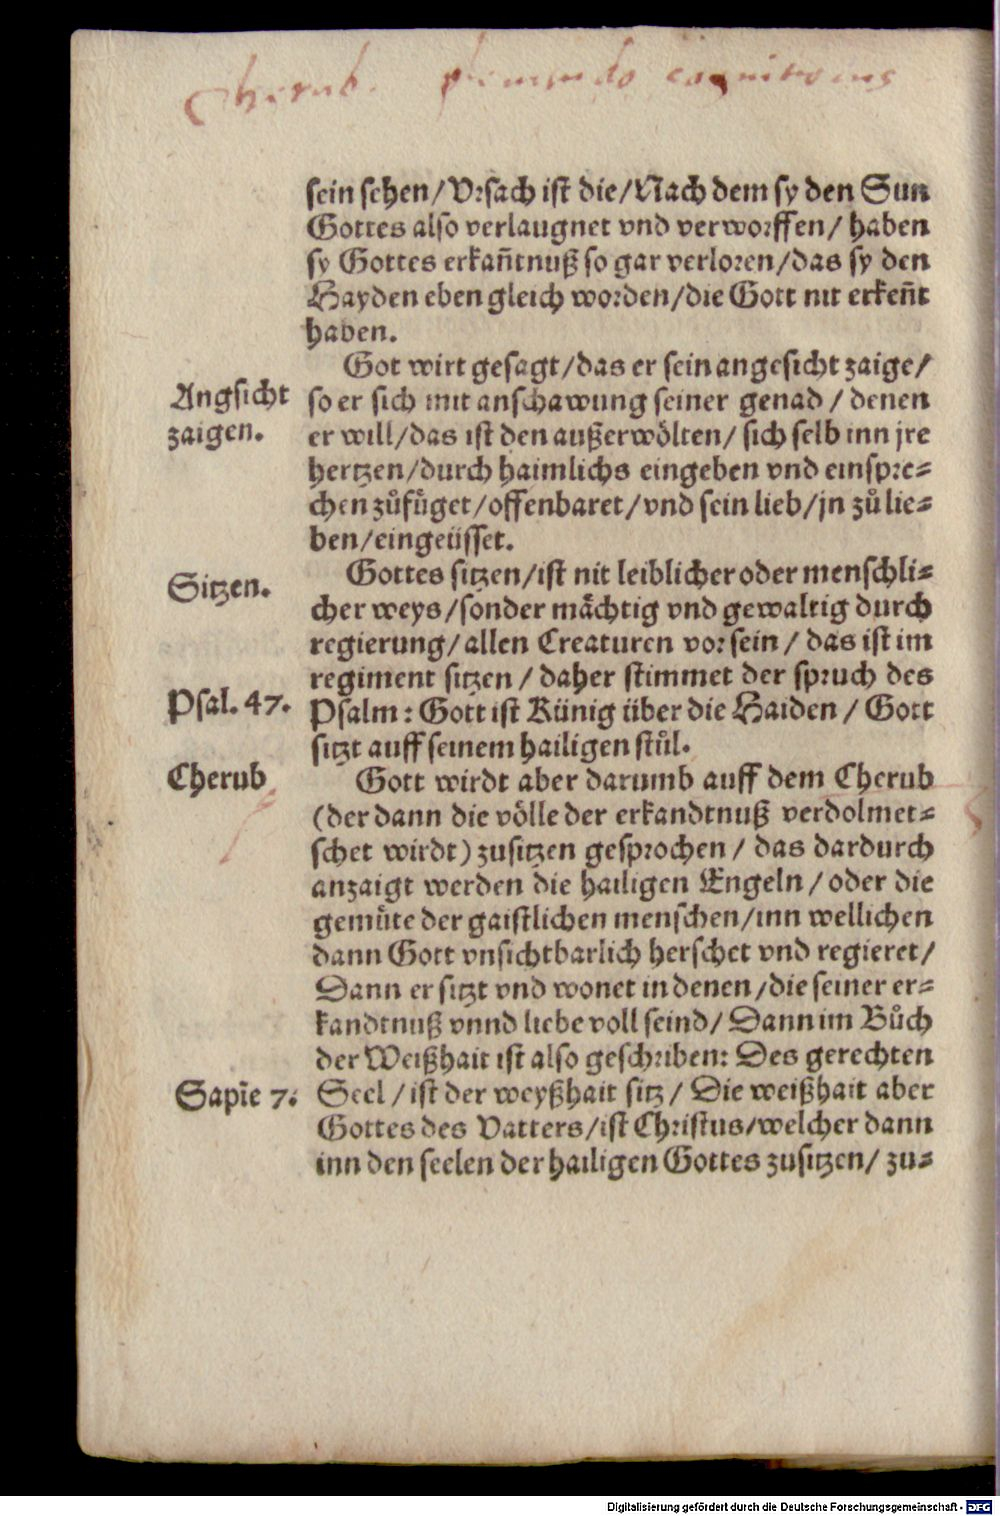 Cherub. plenitudo cognitionis
sein sehen/Vrsach ist die/Nach dem sy den Sun
Gottes also verlaugnet vnd verworffen/ haben
sy Gottes erkañtnuß so gar verloren/das sy den
Hayden eben gleich worden/die Gott nit erkeñt
haben.
Got wirt gesagt/das er sein angesicht zaige/
Angsicht
zaigen.
so er sich mit anschawung seiner genad / denen
er will/das ist den außerwölten/ sich selb inn jre
hertzen/durch haimlichs eingeben vnd einspre⸗
chen zůfüget/offenbaret/vnd sein lieb/jn zů lie⸗
ben/eingeüsset.
Sitzen.
Gottes sitzen/ist nit leiblicher oder menschli⸗
cher weys/sonder mächtig vnd gewaltig durch
regierung/allen Creaturen vor sein / das ist im
regiment sitzen / daher stimmet der spruch des
Psal. 47.
Psalm: Gott ist Künig über die Haiden / Gott
sitzt auff seinem hailigen stůl.
Cherub
Gott wirdt aber darumb auff dem Cherub
(der dann die völle der erkandtnuß verdolmet⸗
schet wirdt) zusitzen gesprochen / das dardurch
anzaigt werden die hailigen Engeln / oder die
gemüte der gaistlichen menschen/inn wellichen
dann Gott vnsichtbarlich herschet vnd regieret/
Dann er sitzt vnd wonet in denen/die seiner er⸗
kandtnuß vnnd liebe voll seind/ Dann im Bůch
der Weißhait ist also geschriben: Des gerechten
Sapīe 7.
Seel / ist der weyßhait sitz / Die weißhait aber
Gottes des Vatters/ist Christus/welcher dann
inn den seelen der hailigen Gottes zusitzen/ zu⸗
Digitalisierung gefördert durch die Deutsche Forschungsgemeinschaft - DFG